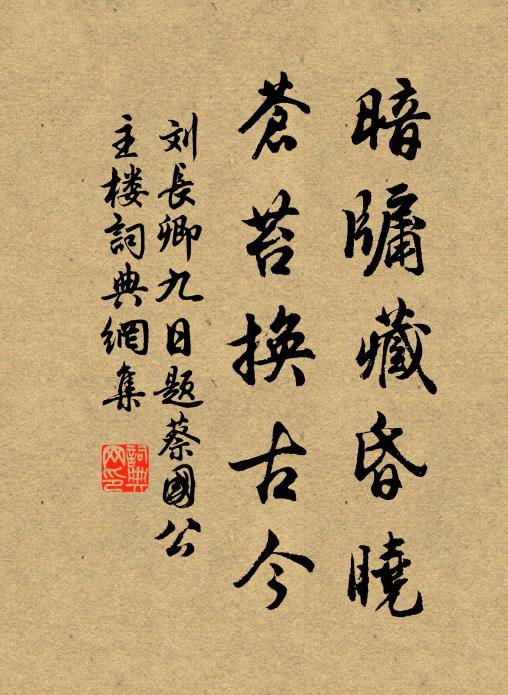 暗牖藏昏曉
蒼苔換古今
刘長卿九日題蔡國公
主楼詞典網集
詞典網印